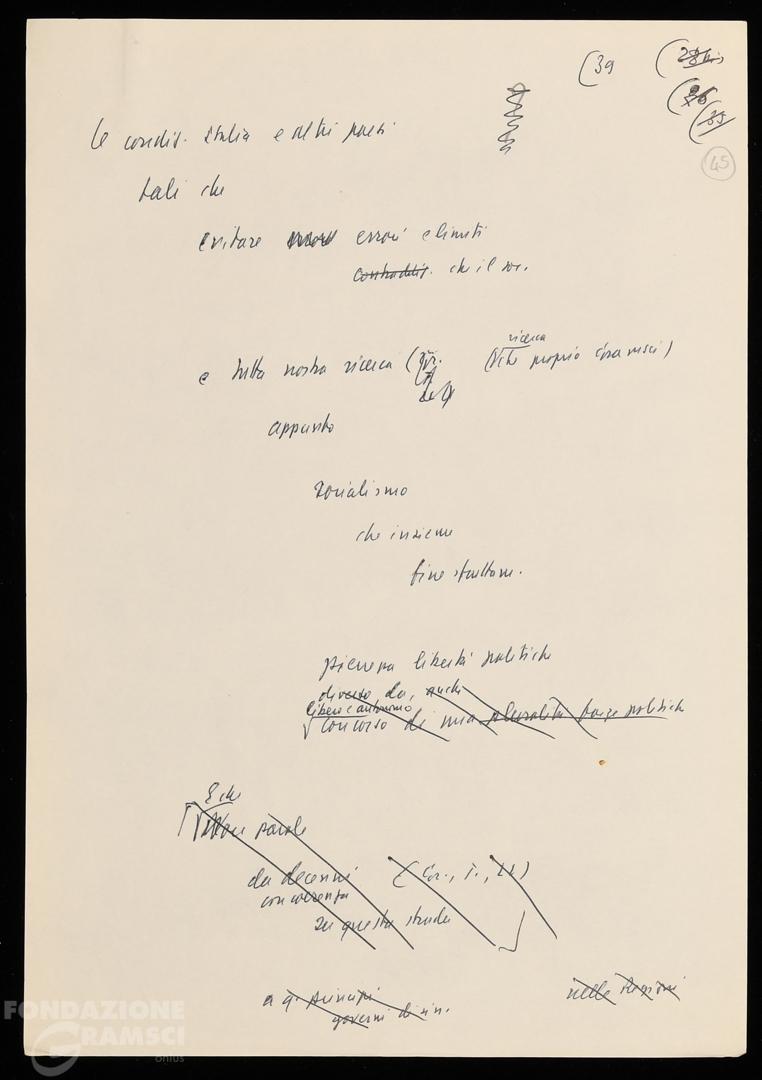 (39
(28bis
(36
(35
45
le condiz. Italia e altri paesi
tali che
evitare errori e limiti
contraddiz. che il soc.
e tutta nostra ricerca (Gr.
T.
ricerca
(che proprio Gramsci)
appunto
socialismo
che insieme
fine sfruttam.
pienezza libertà politiche
diverso da, anche
libero e autonomo
concorso di una pluralità forze politiche
E che
Non parole
da decenni (Gr., T., LL)
con coerenza
su questa strada
a q. principi
governi di sin.
nelle Regioni
FONDAZIONE
GRAMSCI
onlus